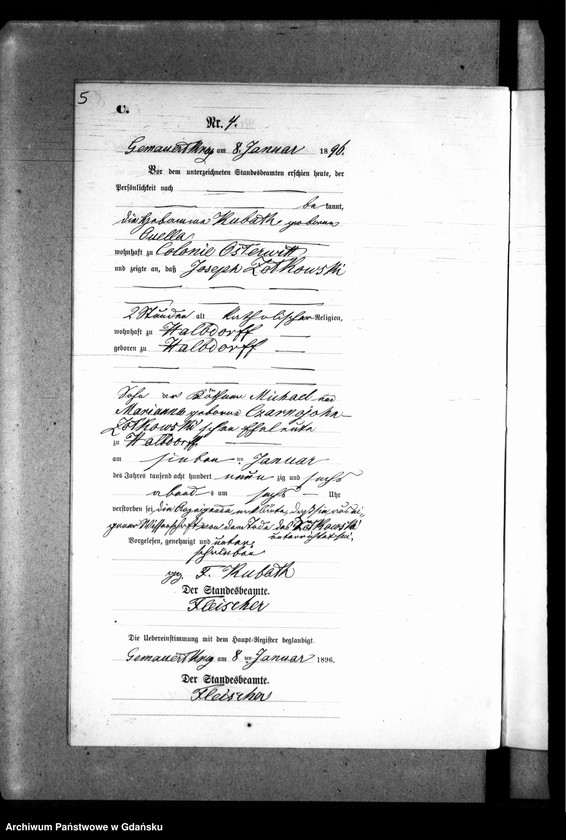 5
C.
Nr. 4.
Gemauert Krug am 8. Januar 1896.
Vor dem unterzeichneten Standesbeamten erschien heute, der
Persönlichkeit nach
be kannt,
die Hebamme Kubath geborene
Quella
wohnhaft zu Colonie Osterwitt
und zeigte an, daß Joseph Zotkowski
2 Stunden alt katholischer Religion,
wohnhaft zu Walddorff
geboren zu Walddorff
Sohn der Michael und
Marianna geborene Czarnojohn
Zotkowski schen Eheleute
zu Walddorff
am sieben ten Januar
des Jahres tausend acht hundert neun zig und sechs
abends um sechs Uhr
verstorben sei, die Anzeigende erklärte, daß sie aus ei-
gener Wissenschaft von dem Tode des Zotkowski
unterrichtet sei.
Vorgelesen, genehmigt und unter-
schrieben
gez. F. Kubath
Der Standesbeamte.
Fleischer
Die Uebereinstimmung mit dem Haupt-Register beglaubigt.
Gemauert Krug am 8 ten Januar 1896.
Der Standesbeamte.
Fleischer
Archiwum Państwowe w Gdańsku